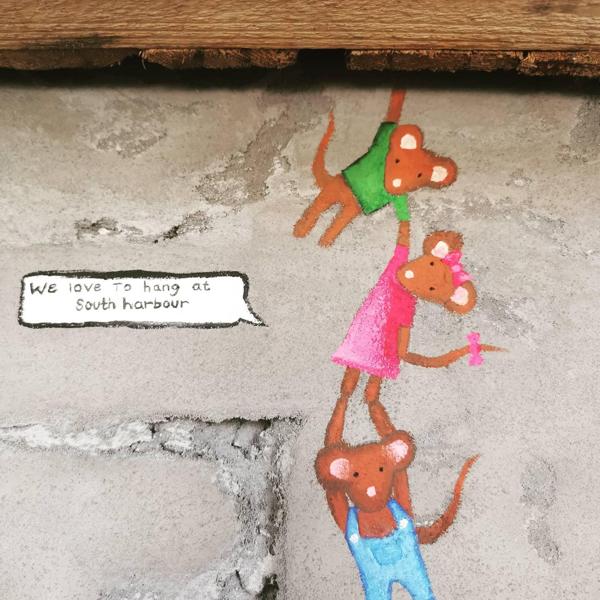 We love To hang at
South harbour